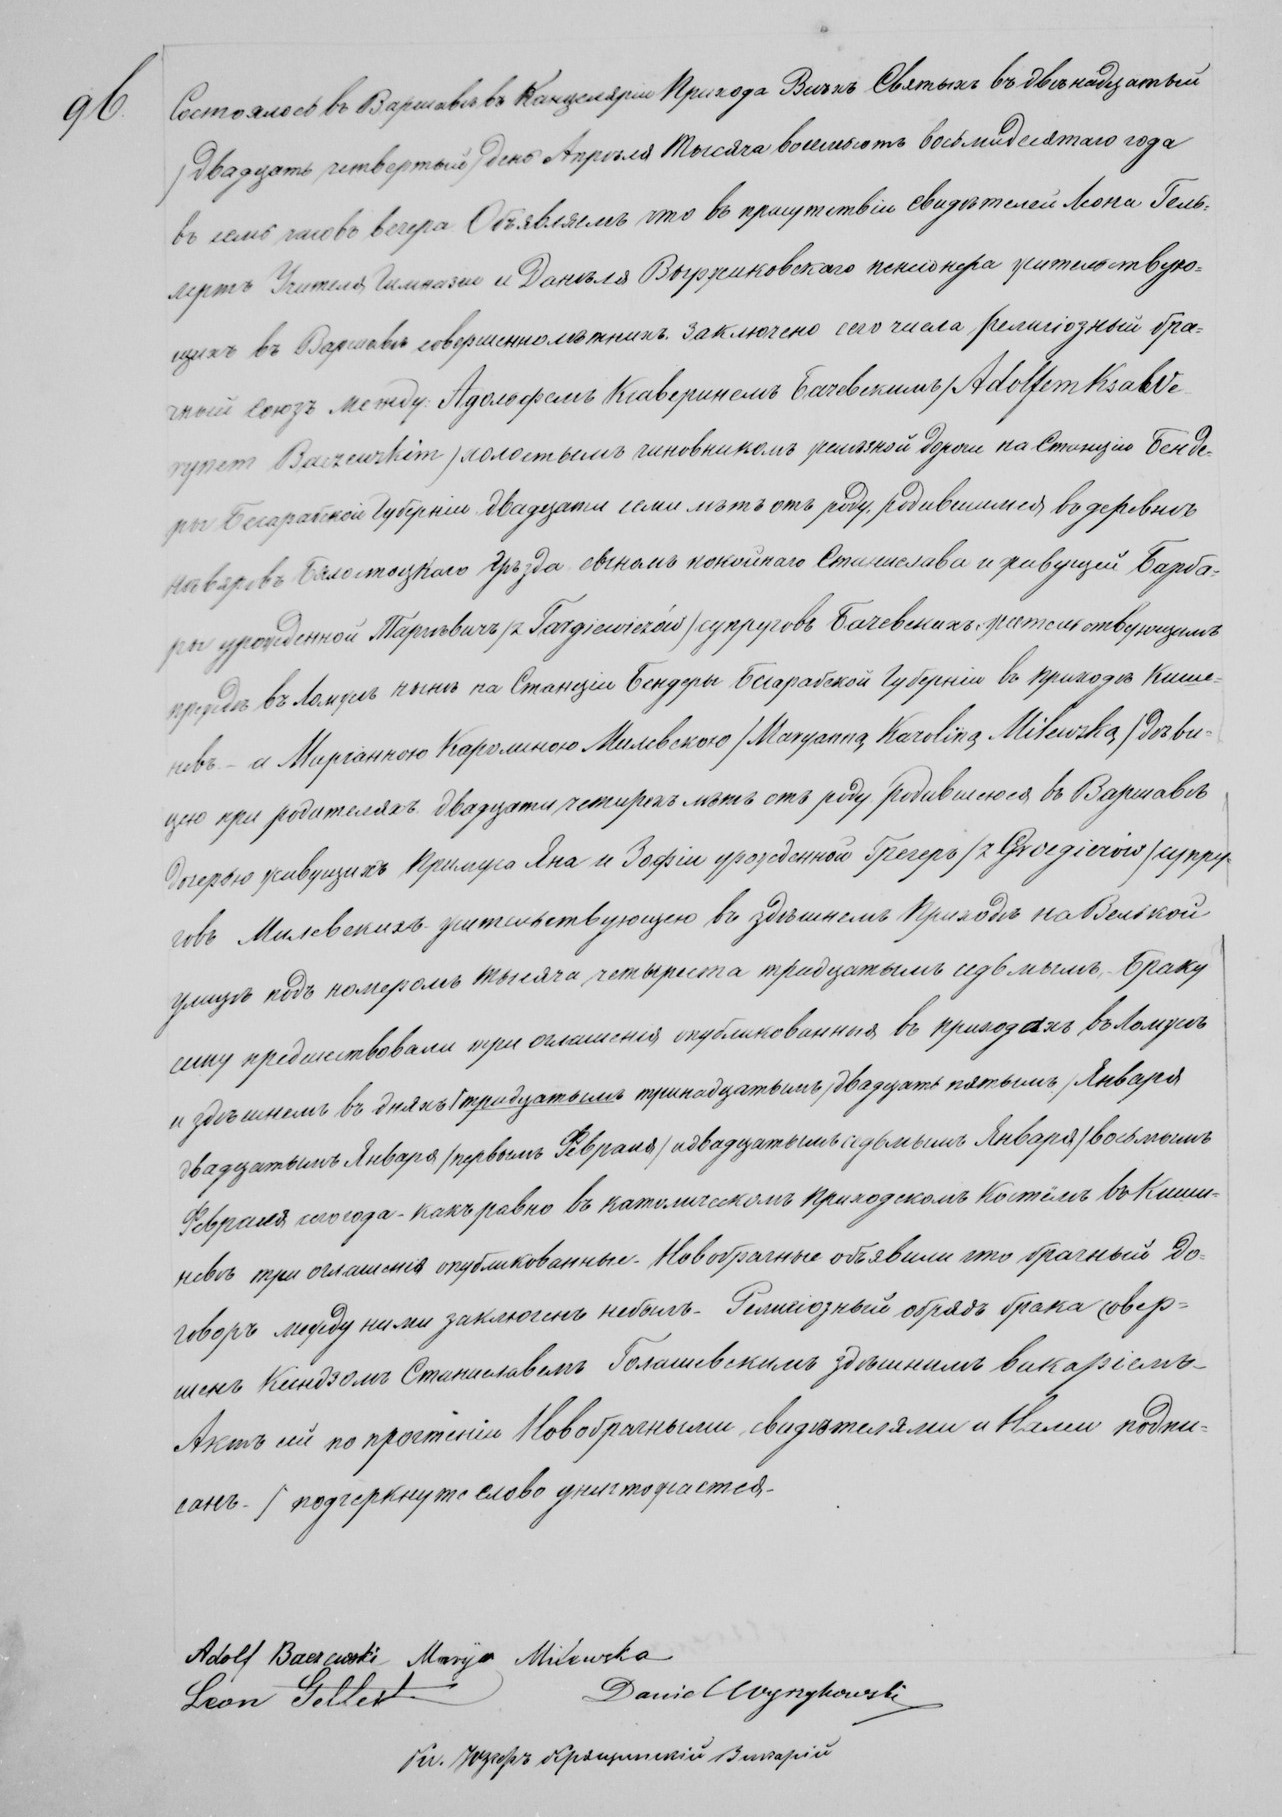 96.
Состоялось въ Варшавѣ въ Канцеляріи Прихода Всѣхъ Святыхъ въ двѣнадцатый
/двадцать четвертый/ день Апрѣля тысяча восемьсотъ восьмидесятаго года
въ семь часовъ вечера Объявляемъ что въ присутствіи свидѣтелей Леона Гель-
лертъ Учителя Гимназіи и Даніеля Выржиковскаго пенсіонера жительствую-
щихъ въ Варшавѣ совершеннолѣтнихъ. Заключено сего числа религіозный бра-
чный союзъ между: Адольфемъ Ксаверинемъ Бачевскимъ /Adolfem Ksawe
rynem Baczewskim/ холостымъ чиновникомъ желѣзной дороги на Станціи Бенде-
ры Бесарабской Губерніи двадцати семи лѣтъ отъ роду, родившимся въ деревнѣ
Бялостоцкаго Уѣзда сыномъ покойнаго Станислава и живущей Барба-
ры урожденной Таргѣвичъ /z Targiewiczów/ супруговъ Бачевскихъ, жительствующимъ
прежде въ Ломжѣ нынѣ на Станціи Бендеры Бесарабской Губерніи въ приходѣ Кише-
невъ - и Маріанною Каролиною Милевскою /Maryanną Karoliną Milewską/ дѣви-
цею при родителяхъ двадцати четырехъ лѣтъ отъ роду, родившеюся въ Варшавѣ
дочерью живущихъ Примуса Яна и Зофіи урожденной Грегеръ /z Groegierów/ супру-
говъ Милевскихъ жительствующею въ здѣшнемъ Приходѣ на Велькой
улицѣ подъ номеромъ тысяча четыреста тридцатымъ седьмымъ, - Браку
сему предшествовали три оглашенія опубликованныя въ приходахъ въ Ломжѣ
и здѣшнемъ въ дняхъ / тридцатымъ тринадцатымъ /двадцать пятымъ/ Января
двадцатымъ Января /первымъ Февраля/ и двадцатымъ седьмымъ Января /восьмымъ
Февраля сего года - какъ равно въ католическомъ приходскомъ Костёлѣ въ Киши-
невѣ три оглашенія опубликованные. Новобрачные объявили что брачный до-
говоръ между ними заключенъ небылъ - Религіозный обрядъ брака совер-
шенъ Ксендзомъ Станиславемъ Голашевскимъ здѣшнимъ викаріемъ -
Актъ сей по прочтеніи Новобрачными, свидѣтелями и Нами подпи-
санъ - / подчеркнуто слово уничтожается -
Adolf Baczewski Marya Milewska
Leon Gellert Daniel Wyrzykowski
Кс. Викарій